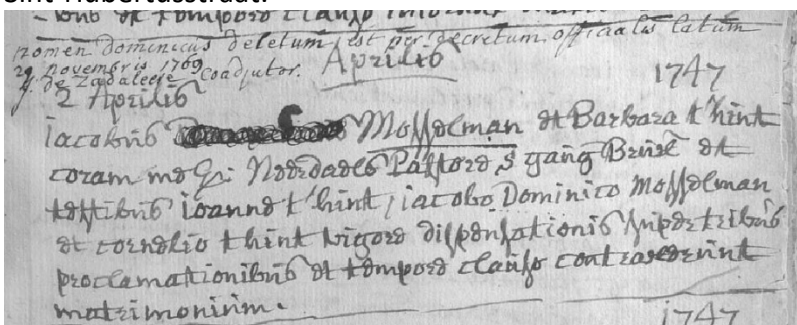 Sint-Hubertusstraat.
et tempore clauso
nomen dominicus deletum est per decretum officialis latum
29 novembris 1769
J. de Zadaleere Coadjutor.
Aprilis
1747
2 Aprilis
iacobus Mosselman et Barbara t'hint
coram me Pastore S gang Bruxel et
testibus ioanne t'hint, iacobo Dominico Mosselman
et cornelio t'hint vigore dispensationis super tribus
proclamationibus et tempore clauso contraxerunt
matrimonium.
1747